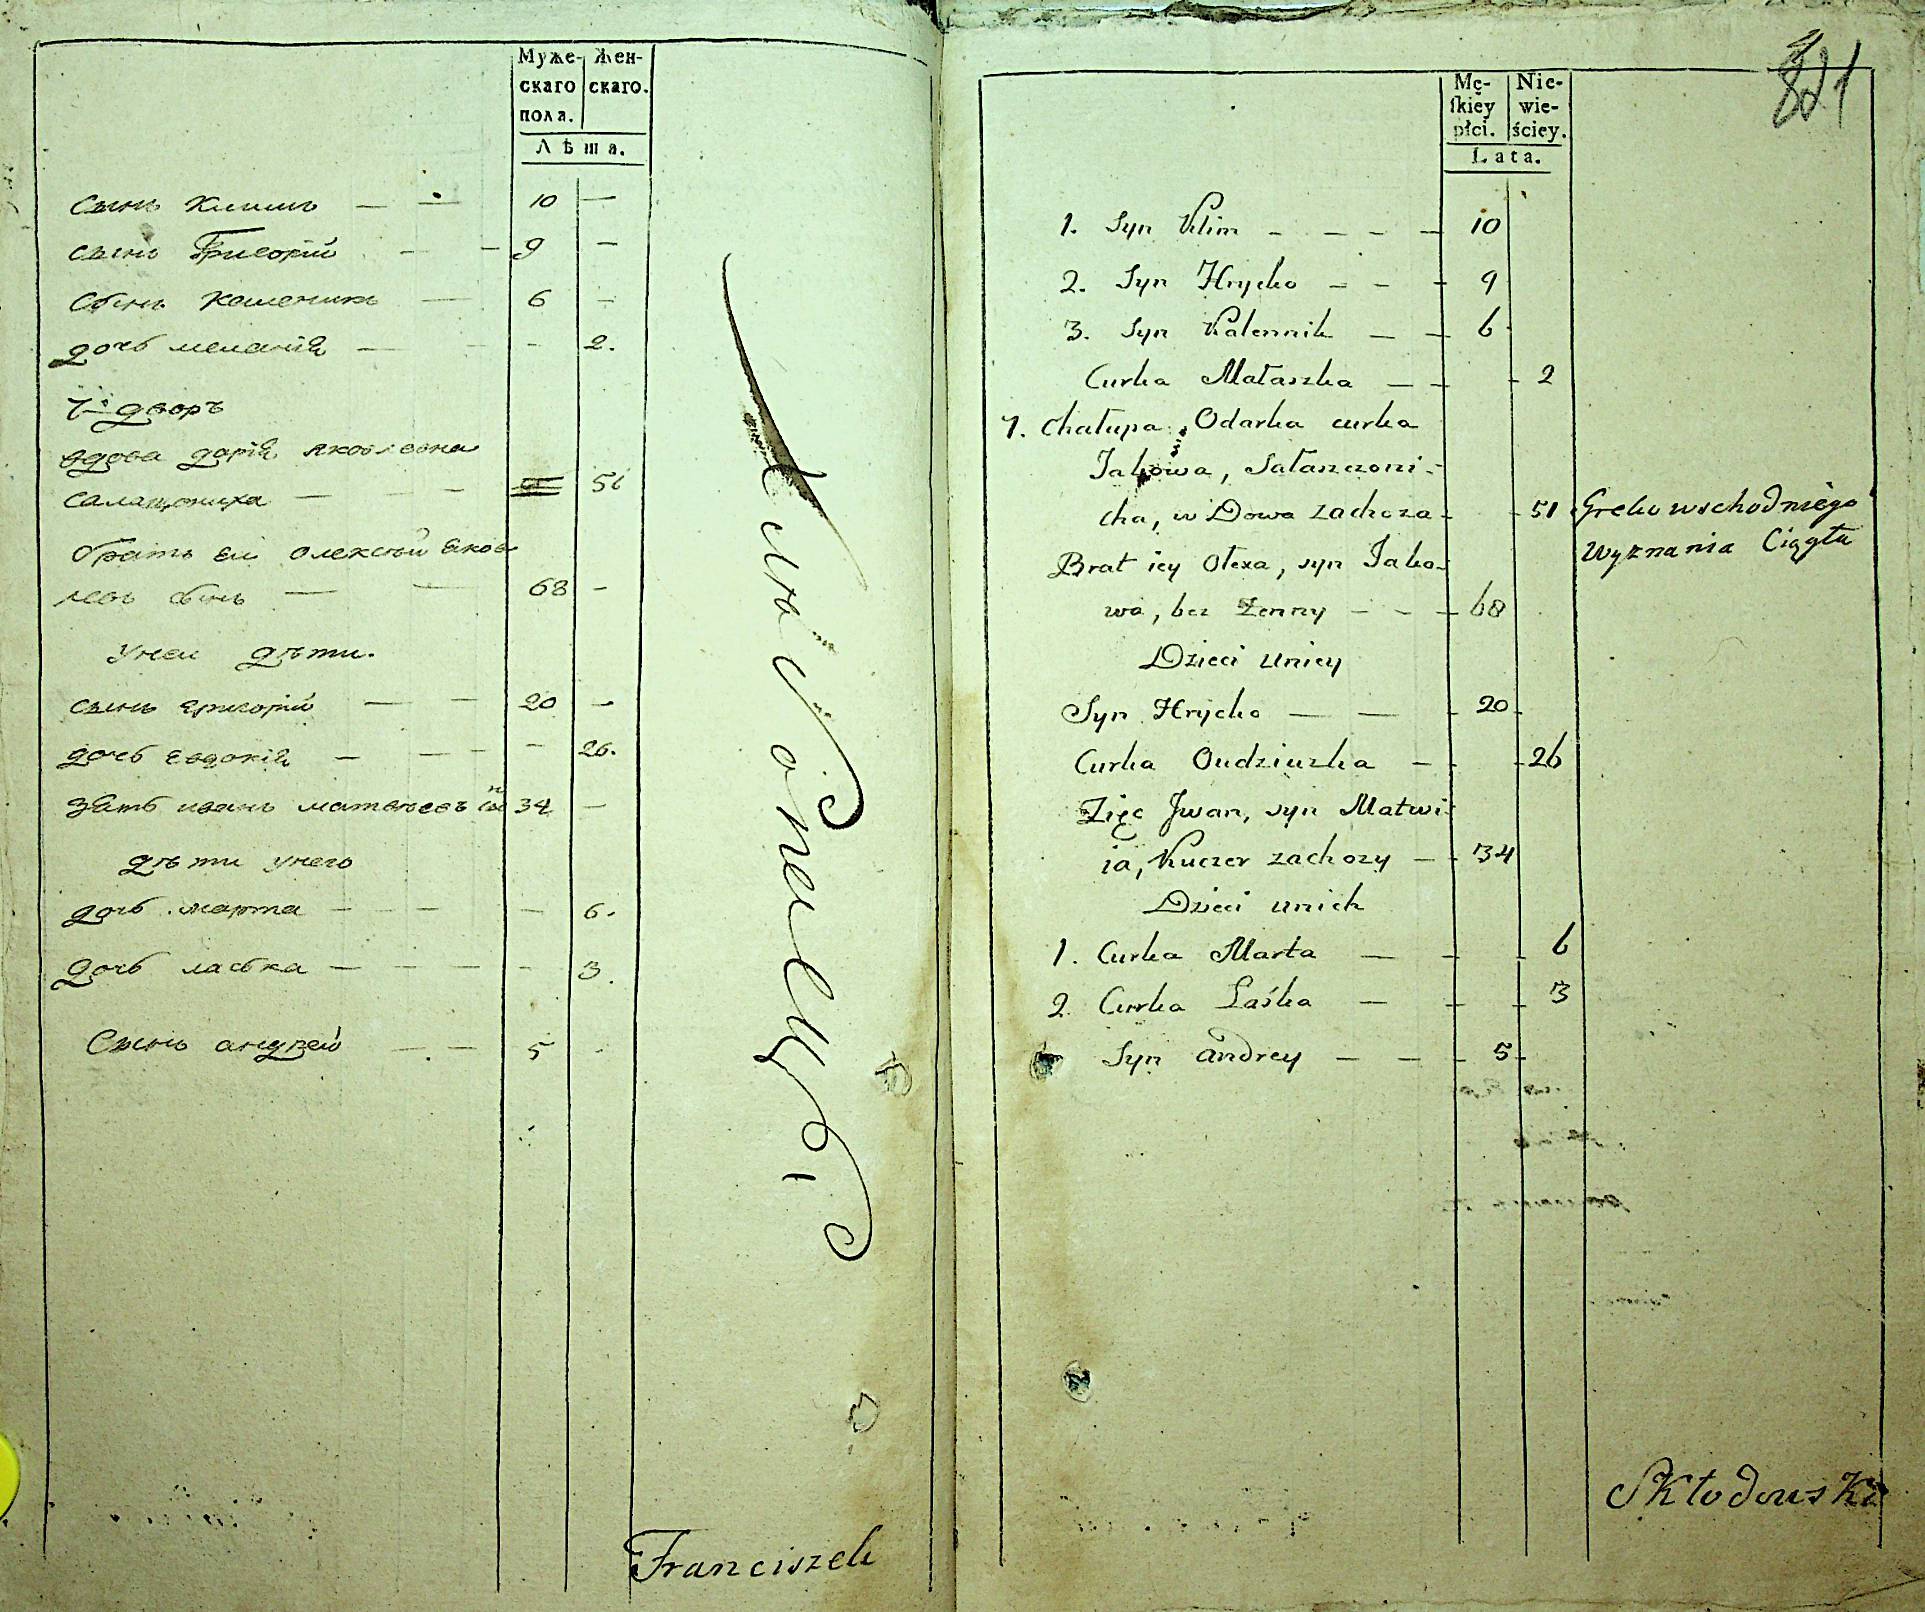 Муже- Жен-
скаго скаго.
пола.
Лѣта.
сынъ климъ — — 10 —
сынъ Григорій - - 9 —
сынъ каленикъ — 6 —
дочь меланія — - - 2.
7й дворъ
вдова дарія яковлевна
салащониха — - - 51
братъ ей олексѣй яков
левъ сынъ — — 68 -
унеи дѣти.
сынъ григорій — — 20 —
дочь евдокія — — - - 26.
зять иванъ матвѣевъ снъ 34 —
дѣти унего
дочь марта — - - — 6.
дочь ласька — - - - - 3.
Сынъ андрей — - 5 -
Franciszek
821
Mę- Nie-
skiey wie-
płci. ściey.
Lata.
1. Syn Klim - - - - 10
2. Syn Hrycko - - - 9
3. Syn Kalennik — - 6
Curka Małaszka — - - 2
7. Chałupa. Odarka curka
Jakowa, Sałaszczoni-
cha, wDowa zachoza - - 51 Greko wschodniego
Wyznania Ciągła
Brat iey Ołexa, syn Jako-
wa, bez Żenny - - - 68
Dzieci unicy
Syn Hrycko — — - 20 -
Curka Oudziuszka — - - 26
Zięc Jwan, syn Matwi-
ia, Kuczer zachozy — - 34
Dzieci unich
1. Curka Marta — - - 6
2. Curka Łaśka — - - 3
Syn andrey — — - 5 -
Skłodowski